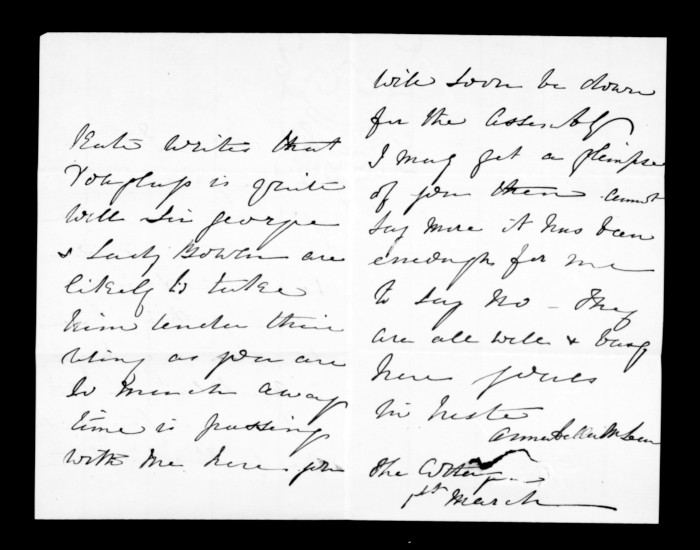 Kate writes that
Douglas is quite
well Sir George
& Lady Bowen are
likely to take
him under their
wing as you are
so much away
time is passing
with me here. you
will soon be down
for the Assembly
I may get a glimpse
of you then cannot
say more it has been
enough for me
to say no - They
are all well & busy
here yours
in haste
Annabella McLean
The Cottage
1st March